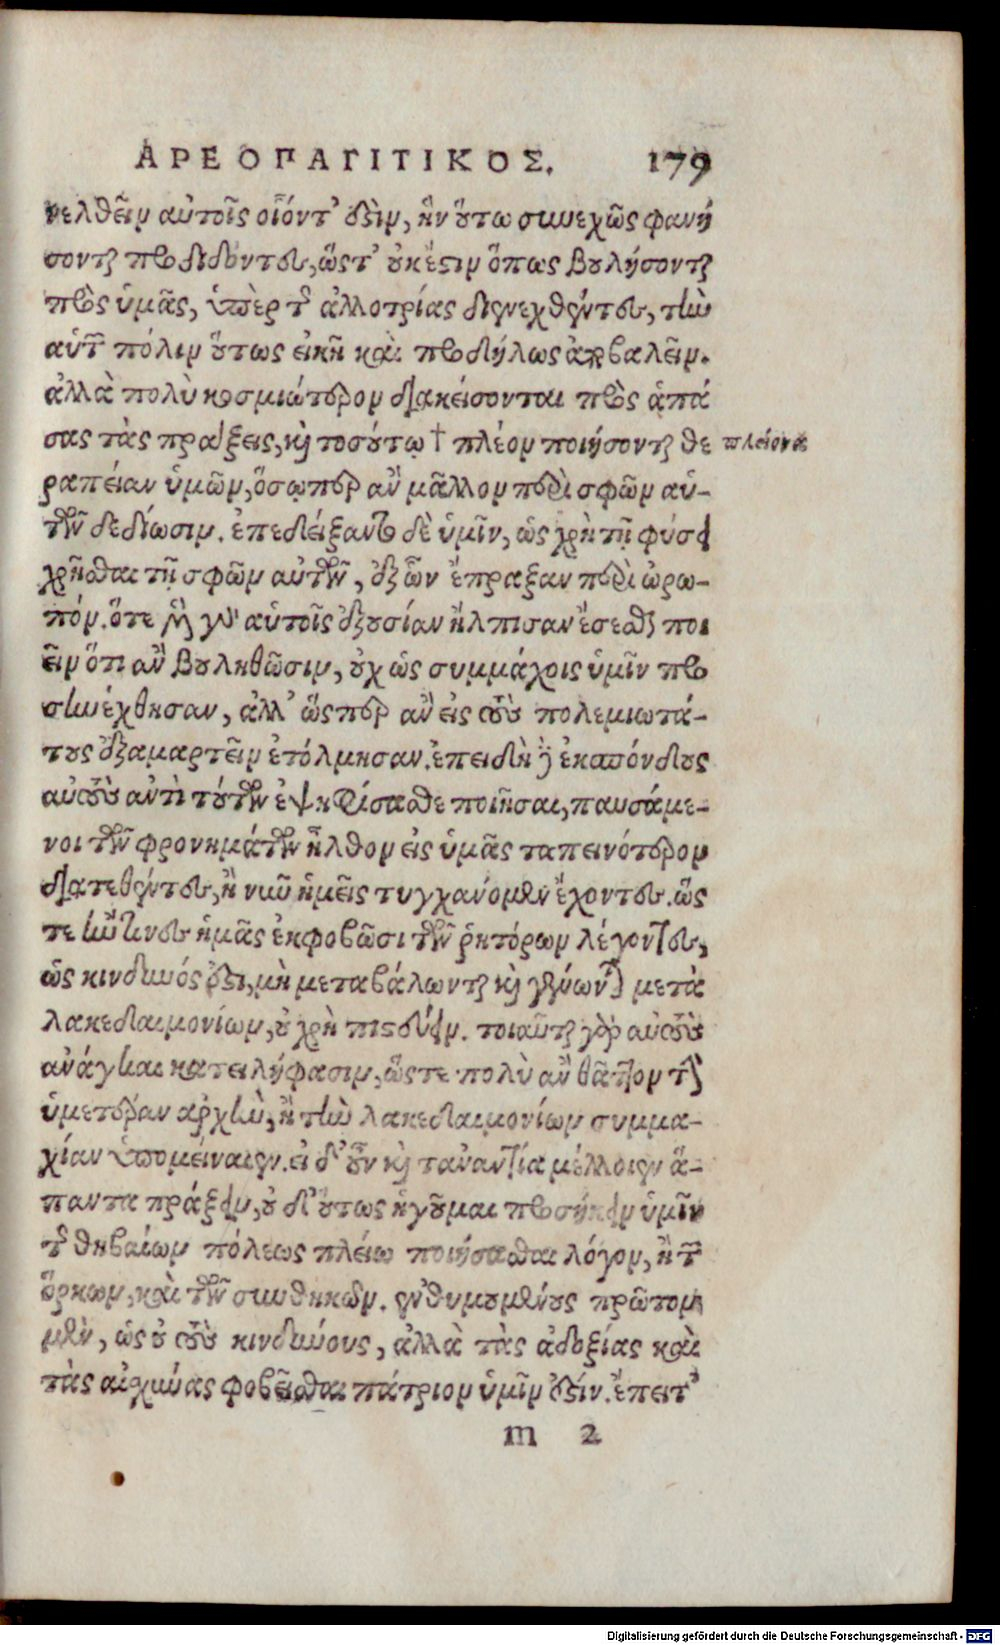 ΑΡΕΟΠΑΓΙΤΙΚΟΣ. 179
νελθεῖν αὐτοῖς οἷόντ' ἐστὶν, ἢν οὕτω συνεχῶς φανή
σονται προδιδόντες, ὥστ' οὐκ ἔστιν ὅπως βουλήσονται
πρὸς ὑμᾶς, ὑπὲρ τῆς ἀλλοτρίας διενεχθέντες, τὴν
αὑτῶν πόλιν οὕτως εἰκῆ καὶ προδήλως ἀποβαλεῖν.
ἀλλὰ πολὺ κοσμιώτερον διακείσονται πρὸς ἁπά
σας τὰς πράξεις, καὶ τοσούτῳ † πλέον ποιήσονται θε πλείονα
ραπείαν ὑμῶν, ὅσῳπερ ἂν μᾶλλον περὶ σφῶν αὐ-
τῶν δεδίωσιν. ἐπεδείξαντο δὲ ὑμῖν, ὡς χρὴ τῇ φύσει
χρῆσθαι τῇ σφῶν αὐτῶν, ἐξ ὧν ἔπραξαν περὶ ὠρω-
πόν. ὅτε μὲν γὰρ αὑτοῖς ἐξουσίαν ἤλπισαν ἔσεσθαι ποι
εῖν ὅτι ἂν βουληθῶσιν, οὐχ ὡς συμμάχοις ὑμῖν προ
σηνέχθησαν, ἀλλ' ὥσπερ ἂν εἰς τοὺς πολεμιωτά-
τους ἐξαμαρτεῖν ἐτόλμησαν. ἐπειδὴ δὲ ἐκσπόνδους
αὐτοὺς ἀντὶ τούτων ἐψηφίσασθε ποιῆσαι, παυσάμε-
νοι τῶν φρονημάτων ἦλθον εἰς ὑμᾶς ταπεινότερον
διατεθέντες, ἢ νῦν ἡμεῖς τυγχάνομεν ἔχοντες. ὥς
τε ἤν τινες ἡμᾶς ἐκφοβῶσι τῶν ῥητόρων λέγοντες,
ὡς κινδυνός ἐστι, μὴ μεταβάλωνται καὶ γένωνται μετὰ
λακεδαιμονίων, οὐ χρὴ πιστεύειν. τοιαῦται γὰρ αὐτοὺς
ἀνάγκαι κατειλήφασιν, ὥστε πολὺ ἂν θᾶττον τὴν
ὑμετέραν ἀρχὴν, ἢ τὴν λακεδαιμονίων συμμα-
χίαν ὑπομείναιεν. εἰ δ' οὖν καὶ τἀναντία μέλλοιεν ἅ-
παντα πράξειν, οὐ δ' οὕτως ἡγοῦμαι προσήκειν ὑμῖν
τῆς θηβαίων πόλεως πλείω ποιήσασθαι λόγον, ἢ τῶν
ὅρκων, καὶ τῶν συνθηκῶν. ἐνθυμουμένους πρῶτον
μὲν, ὡς οὐ τοὺς κινδύνους, ἀλλὰ τὰς ἀδοξίας καὶ
τὰς αἰσχύνας φοβεῖσθαι πάτριον ὑμῖν ἐστίν. ἔπειτ'
m 2
Digitalisierung gefördert durch die Deutsche Forschungsgemeinschaft - DFG